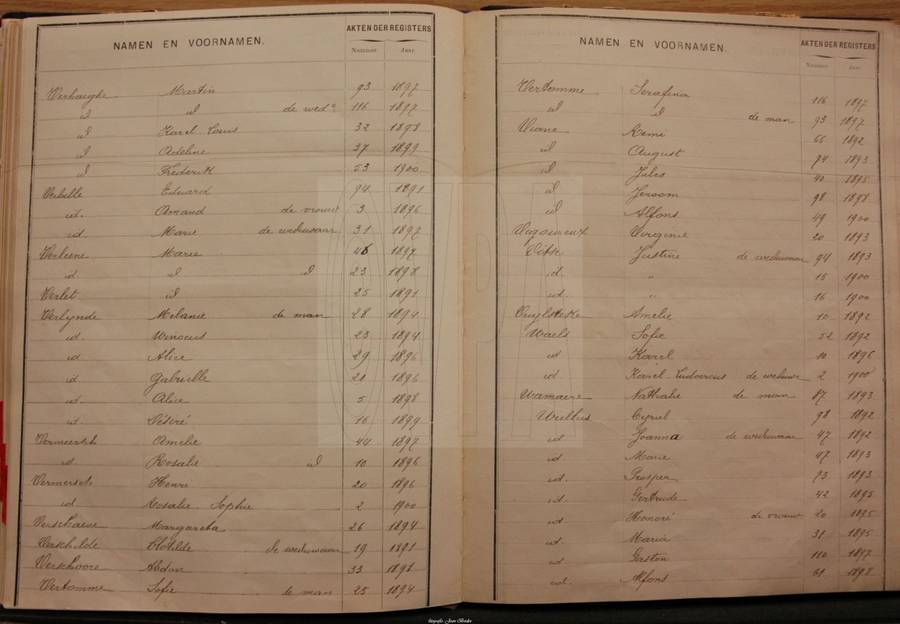 NAMEN EN VOORNAMEN.
AKTEN DER REGISTERS
Nummer Jaar
Verhaeghe Martin 93 1897
id id de wed^e 116 1897
id Karel Louis 32 1898
id Adeline 37 1899
id Frederik 53 1900
Verhille Edward 94 1891
id. Amand de vrouw 3 1896
id. Marie de weduwaar 31 1897
Verleene Marie 46 1897
id id id 23 1898
Verlet id 25 1891
Verlynde Melanie de man 28 1894
id. 23 1894
id Alice 29 1896
id Gabrielle 21 1896
id. Alice 5 1898
id Désiré 16 1899
Vermeersch Amelie 44 1897
id. Rosalie id 10 1896
Vermersch Henri 20 1896
id. Rosalie Sophie 2 1900
Verschaeve Margareta 26 1894
Verschilde Clotilde de weduwaar 19 1891
Verschoore Abdon 33 1898
Vertomme Sofie de man 25 1894
NAMEN EN VOORNAMEN.
AKTEN DER REGISTERS
Nummer Jaar
Vertomme Serafina 116 1897
id id de man 93 1897
Viane Remi 66 1892
id August 74 1893
id Jules 40 1895
id Jeroom 98 1898
id Alfons 49 1900
Vigoureux Virginie 20 1893
Vitse Justine de weduwaar 94 1893
id. " 15 1900
id. " 16 1900
Vuylsteke Amelie 10 1892
Waels Sofie 52 1892
id Karel 10 1896
id. Karel Ludovicus de weduwe 2 1900
Wamaere Nathalie de man 87 1893
Wullus Cyriel 98 1892
id Joanna de weduwaar 47 1892
id. Marie 47 1893
id. Prosper 73 1893
id. Gertrude 42 1895
id Honoré de vrouw 20 1895
id. Maria 31 1895
id Gaston 110 1897
id. Alfons 61 1898